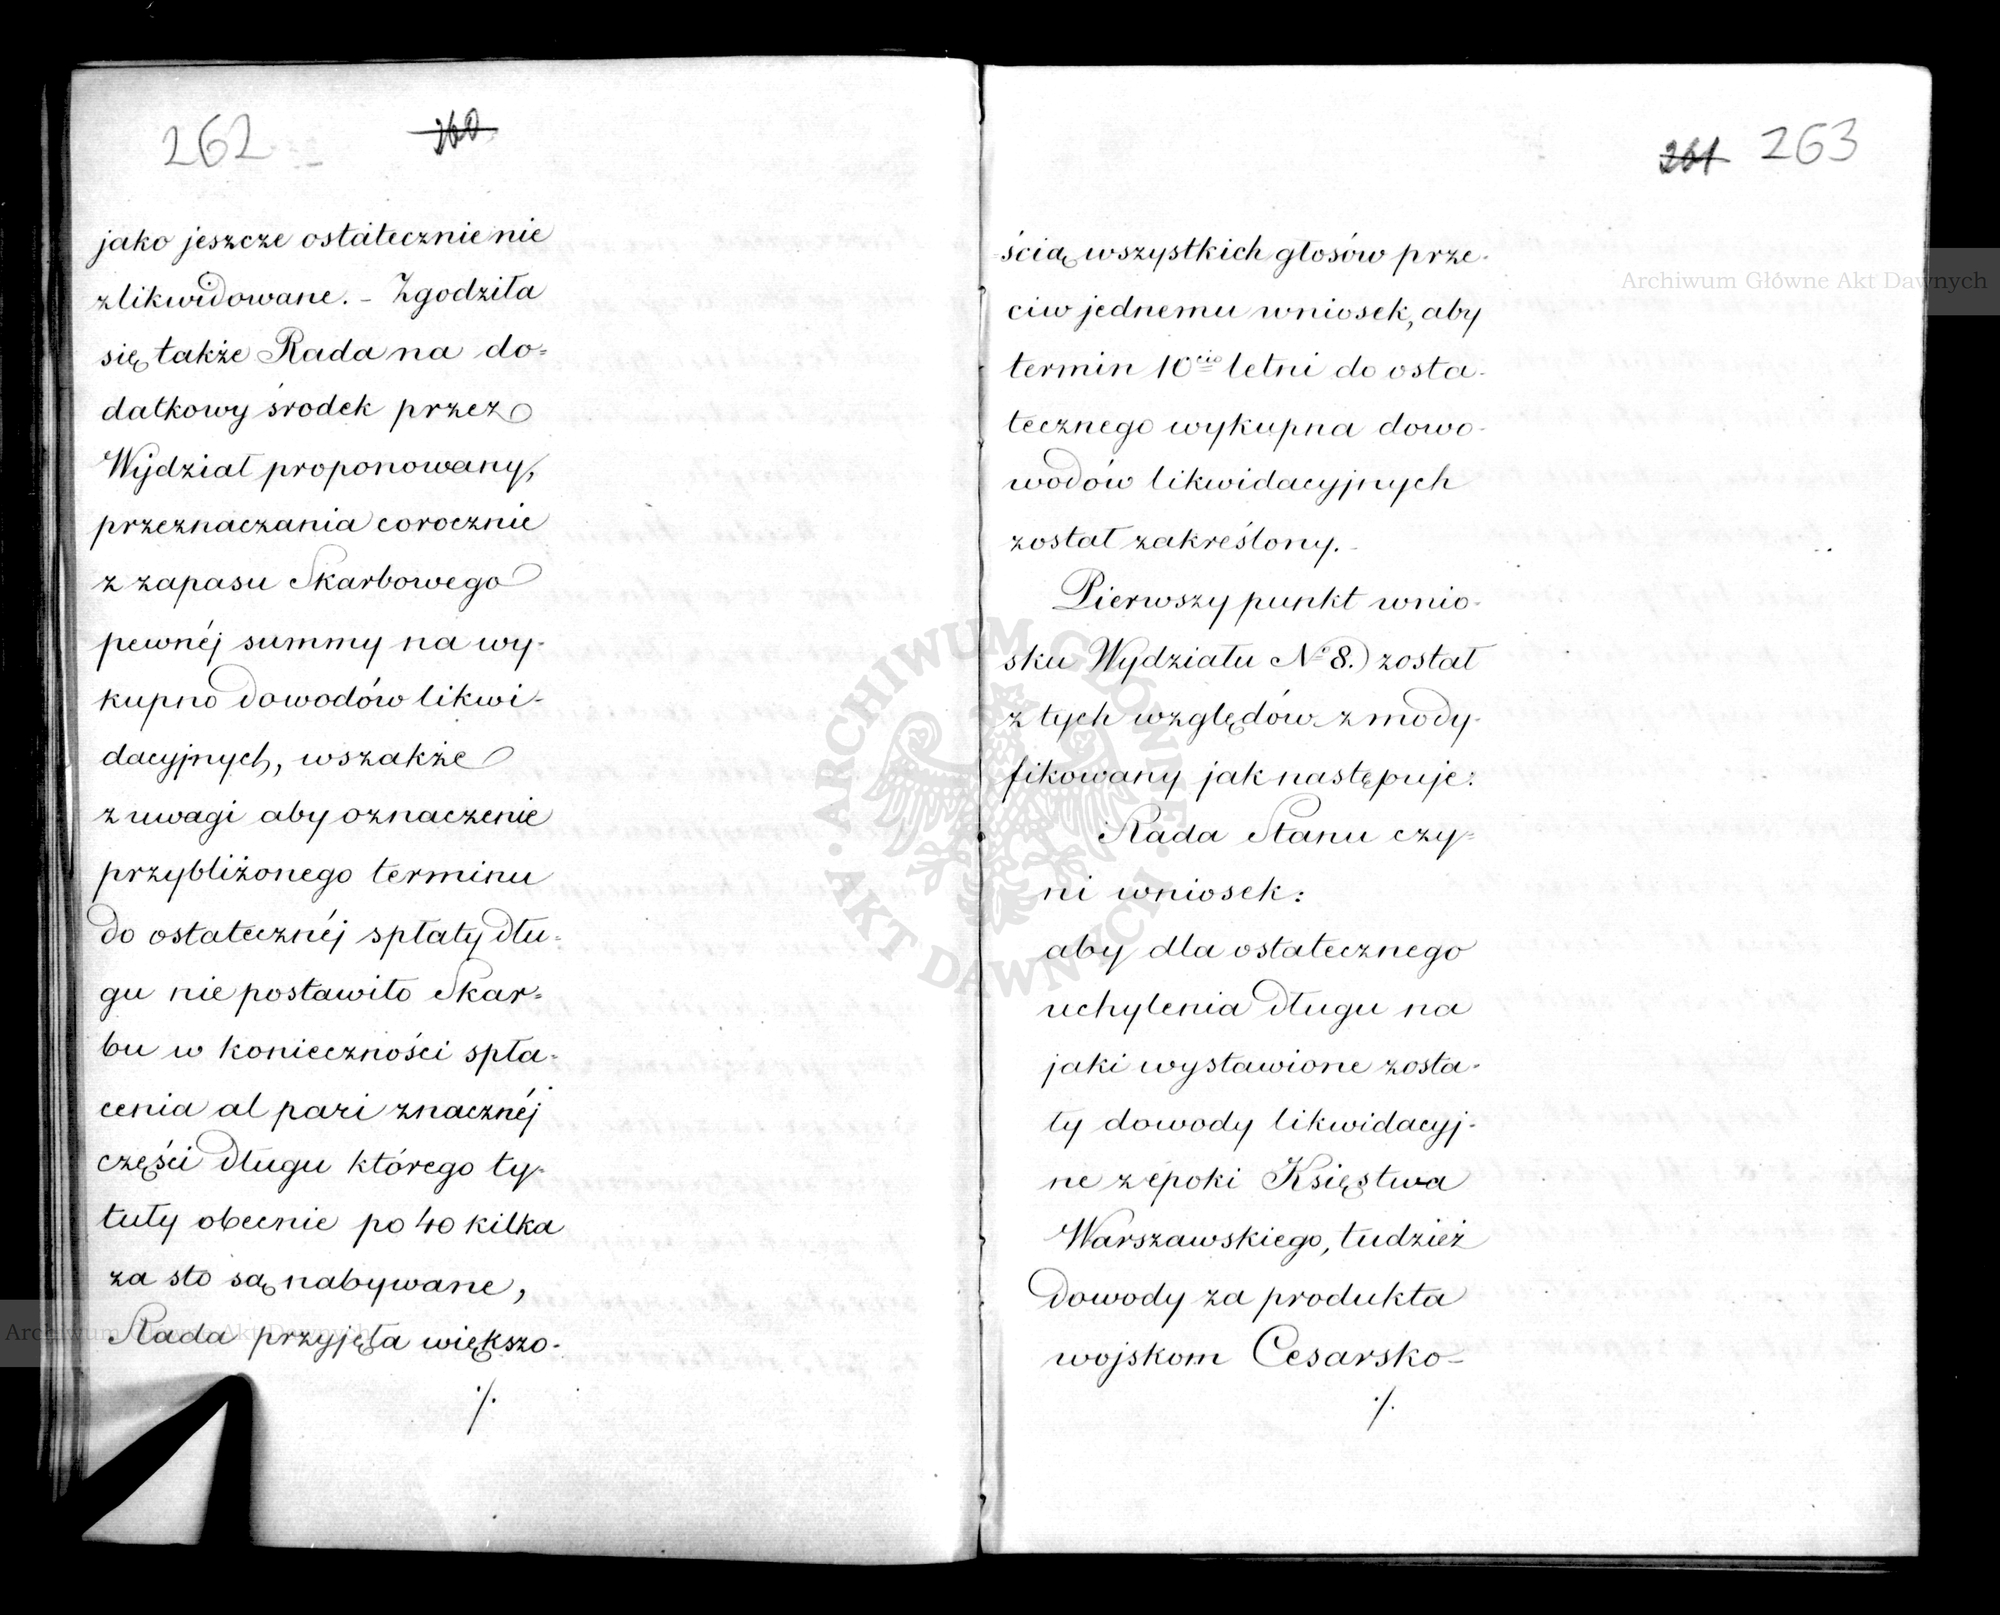 262 260
jako jeszcze ostatecznie nie
zlikwidowane. – Zgodziła
się także Rada na do=
datkowy środek przez
Wydział proponowany,
przeznaczania corocznie
z zapasu Skarbowego
pewnéj summy na wy-
kupno dowodów likwi-
dacyjnych, wszakże
z uwagi aby oznaczenie
przybliżonego terminu
do ostatecznéj spłaty dłu-
gu nie postawiło Skar-
bu w konieczności spła-
cenia al pari znacznéj
części długu którego ty-
tuły obecnie po 40 kilka
za sto są nabywane,
Rada przyjęła większo-
./.
261 263
ścią wszystkich głosów prze-
ciw jednemu wniosek, aby
termin 10cio letni do osta-
tecznego wykupna dowo-
wodów likwidacyjnych
został zakreślony. –
Pierwszy punkt wnio-
sku Wydziału No 8.) został
z tych względów zmody-
fikowany jak następuje:
Rada Stanu czy-
ni wniosek:
aby dla ostatecznego
uchylenia długu na
jaki wystawione zosta-
ły dowody likwidacyj-
ne z epoki Księstwa
Warszawskiego, tudzież
dowody za produkta
wojskom Cesarsko-
./.
Archiwum Główne Akt Dawnych
Archiwum Główne Akt Dawnych
ARCHIWUM GŁÓWNE · AKT DAWNYCH ·